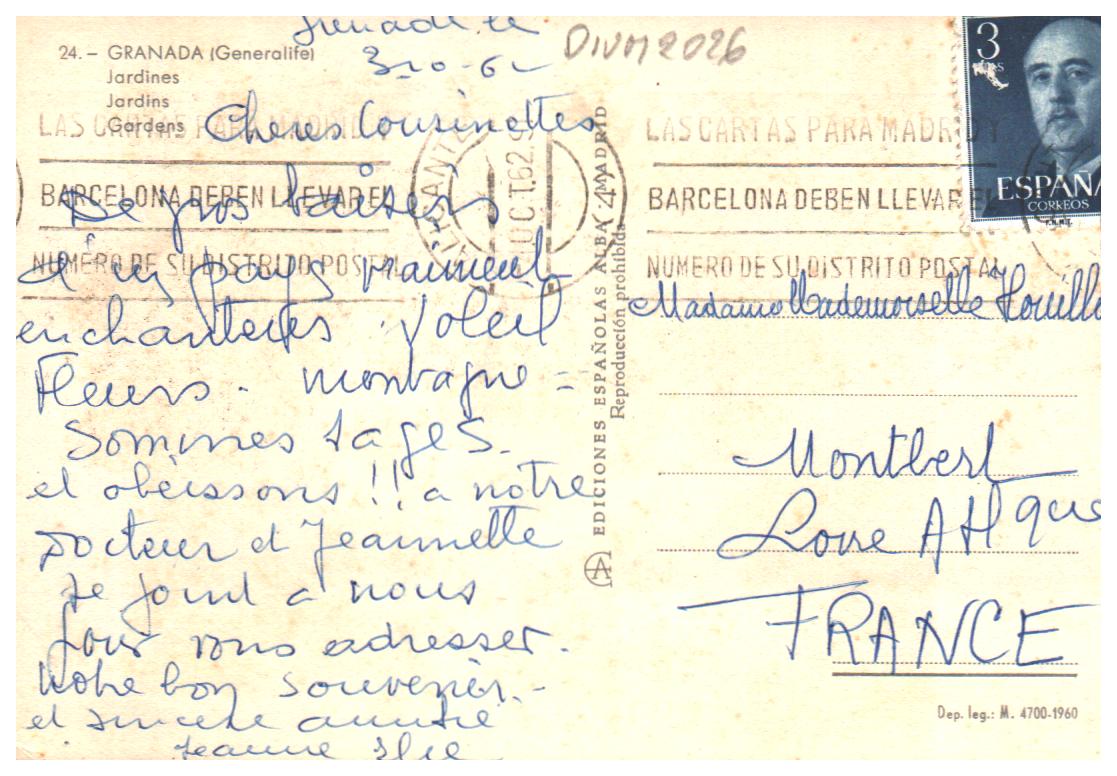 Grenade le
3-10-62
DIVM 2026
24.– GRANADA (Generalife)
Jardines
Jardins
Gardens
Cheres Cousinettes
De gros baisers
d'un pays vraiment
enchanteurs. Voleil
Fleurs. montagne =
Sommes sages.
et obeissons !! a notre
Docteur et Jeannette
se joint a nous
pour vous adresser.
Notre bon souvenir.-
et sincere amitié
Jeanne
LAS CARTAS PARA MADRID Y
BARCELONA DEBEN LLEVAR EL
NUMERO DE SU DISTRITO POSTAL
ALICANTE
OCT.62
EDICIONES ESPAÑOLAS ALBA MADRID
Reproducción prohibida
3
PTAS
ESPAÑA
CORREOS
F.N.M.T.
LAS CARTAS PARA MADRID Y
BARCELONA DEBEN LLEVAR EL
NUMERO DE SU DISTRITO POSTAL
Madame Mademoiselle
Montbert
Loire Atlque
FRANCE
Dep. leg.: M. 4700-1960